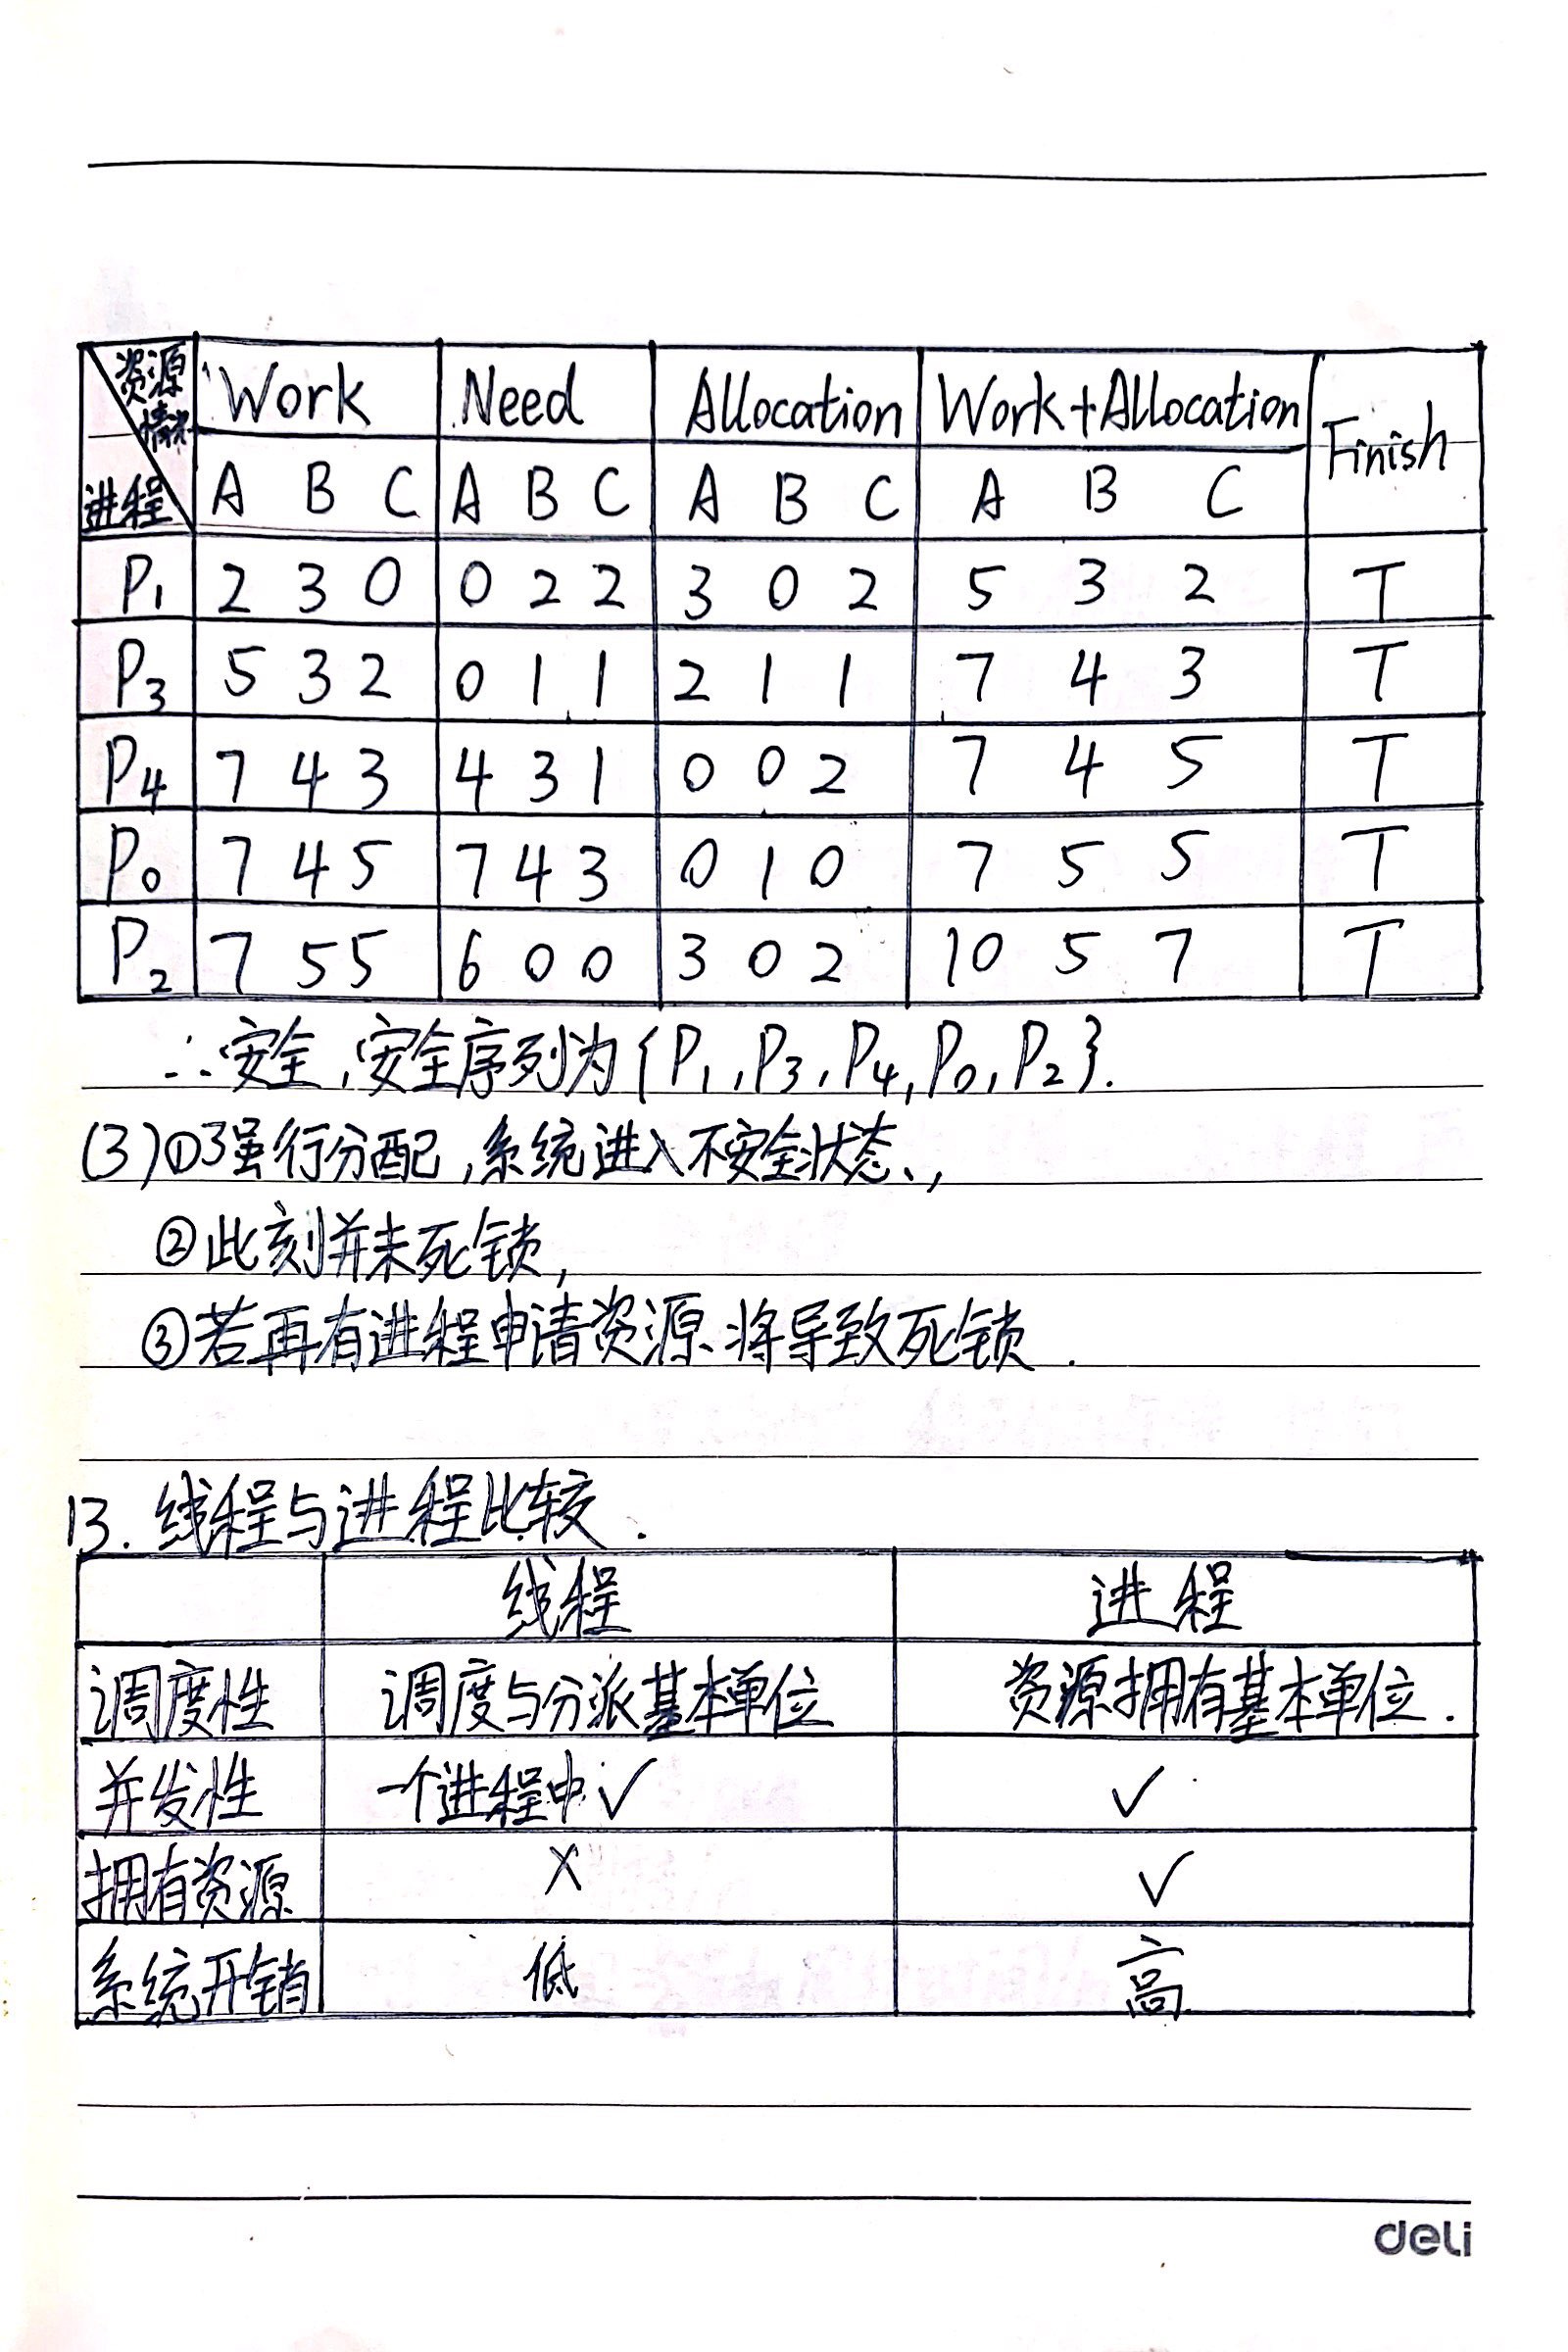 资源情况 Work Need Allocation Work+Allocation Finish
进程 A B C A B C A B C A B C
P₁ 2 3 0 0 2 2 3 0 2 5 3 2 T
P₃ 5 3 2 0 1 1 2 1 1 7 4 3 T
P₄ 7 4 3 4 3 1 0 0 2 7 4 5 T
P₀ 7 4 5 7 4 3 0 1 0 7 5 5 T
P₂ 7 5 5 6 0 0 3 0 2 10 5 7 T
∴安全,安全序列为{P₁,P₃,P₄,P₀,P₂}.
(3)①强行分配,系统进入不安全状态,
②此刻并未死锁,
③若再有进程申请资源、将导致死锁.
13.线程与进程比较.
线程 进程
调度性 调度与分派基本单位 资源拥有基本单位.
并发性 一个进程中✓ ✓
拥有资源 X ✓
系统开销 低 高
deli